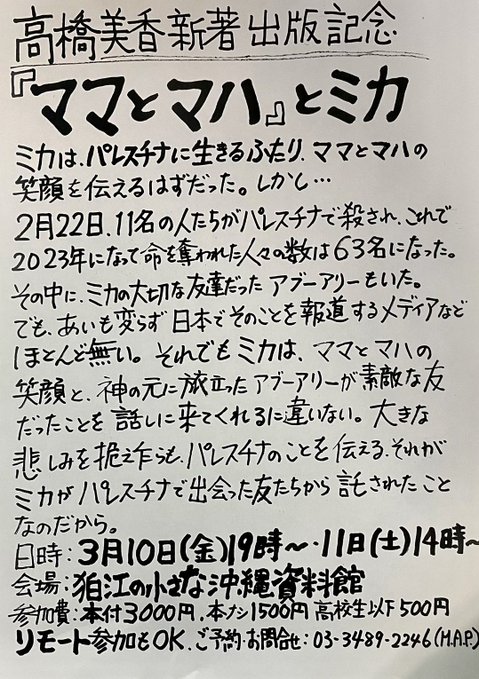 高橋美香新著出版記念
『ママとマハ』とミカ
ミカは、パレスチナに生きるふたり、ママとマハの
笑顔を伝えるはずだった。しかし…
2月22日、11名の人たちがパレスチナで殺され、これで
2023年になって命を奪われた人々の数は63名になった。
その中に、ミカの大切な友達だったアブーアリーもいた。
でも、あいも変らず日本でそのことを報道するメディアなど
ほとんど無い。それでもミカは、ママとマハの
笑顔と、神の元に旅立ったアブーアリーが素敵な友
だったことを話しに来てくれるに違いない。大きな
悲しみを抱え乍らも、パレスチナのことを伝える、それが
ミカがパレスチナで出会った友たちから託されたこと
なのだから。
日時:3月10日(金)19時〜・11日(土)14時〜
会場:狛江の小さな沖縄資料館
参加費:本付3000円、本ナシ1500円 高校生以下500円
リモート参加もOK、ご予約・お問合せ:03-3489-2246(M.A.P.)